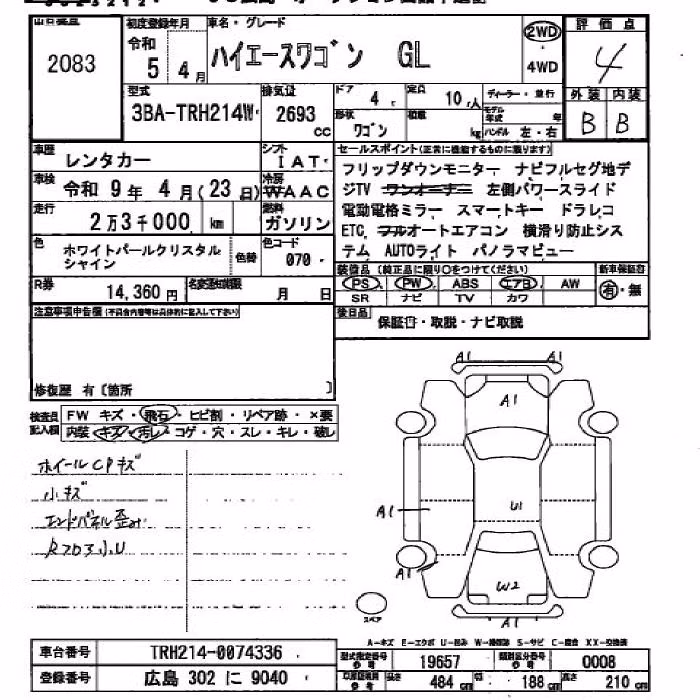 2083
初度登録年月
令和
5 4 月
車名・グレード
ハイエースワゴン GL
2WD
・
4WD
評価点
4
外装 内装
B B
型式
3BA-TRH214W
排気量
2693
cc
ドア
4
定員
10 人
形状
ワゴン
積載
kg
ディーラー・並行
モデル年式
年
ハンドル 左・右
車歴
レンタカー
シフト
IAT
車検
令和 9 年 4 月 (23 日)
冷房
WAAC
走行
2万3千000 km
燃料
ガソリン
色
ホワイトパールクリスタル
シャイン
色替
色コード
070
R券
14,360 円
名変通知期限
月 日
セールスポイント(正常に機能するものに限ります)
フリップダウンモニター ナビフルセグ地デ
ジTV ワンオーナー 左側パワースライド
電動電格ミラー スマートキー ドラレコ
ETC フルオートエアコン 横滑り防止シス
テム AUTOライト パノラマビュー
装備品(純正品に限り○をつけてください)
新車保証書
PS PW ABS エアB AW
有・無
SR ナビ TV カワ
後日品
保証書・取説・ナビ取説
注意事項申告欄(不具合内容等は具体的に記入して下さい)
修復歴 有〔箇所 〕
検査員
記入欄
FW キズ・飛石・ヒビ割・リペア跡・×要
内装 キズ・汚れ・コゲ・穴・スレ・キレ・破レ
ホイールCPキズ
小キズ
エンドパネル歪み
A1 A1
A1
A1
U1
A1
W2
A1
スペア
A-キズ E-エクボ U-凹み W-補修跡 S-サビ C-腐食 XX-交換済
車台番号
TRH214-0074336
登録番号
広島 302 に 9040
型式指定番号
参考
19657
類別区分番号
参考
0008
長さ
484 cm
巾
188 cm
高さ
210 cm